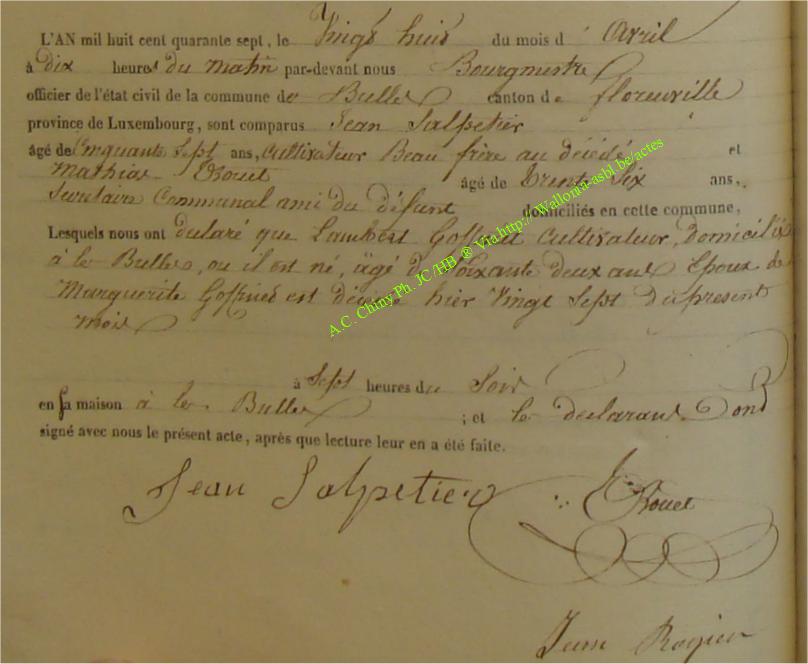 L'AN mil huit cent quarante sept, le Vingt huit du mois d' Avril
à dix heures du matin par-devant nous Bourgmestre
officier de l'état civil de la commune de Bulles canton de florenville
province de Luxembourg, sont comparus Jean Salpetier
âgé de Cinquante Sept ans, Cultivateur Beau frère au décédé et
Mathias Rouet âgé de trente Six ans,
Secretaire Communal ami du défunt domiciliés en cette commune,
Lesquels nous ont declaré que Lambert Goffinet Cultivateur, domicilié
à les Bulles, ou il est né, âgé de Soixante deux ans Epoux de
Marguerite Goffinet est décédé hier Vingt Sept du present
mois
à Sept heures du Soir
en sa maison à les Bulles ; et les declarans ont
signé avec nous le présent acte, après que lecture leur en a été faite.
Jean Salpetier Rouet
Jean
A.C. Chiny Ph. JC/HB ® Via http://Wallonia-asbl.be/actes